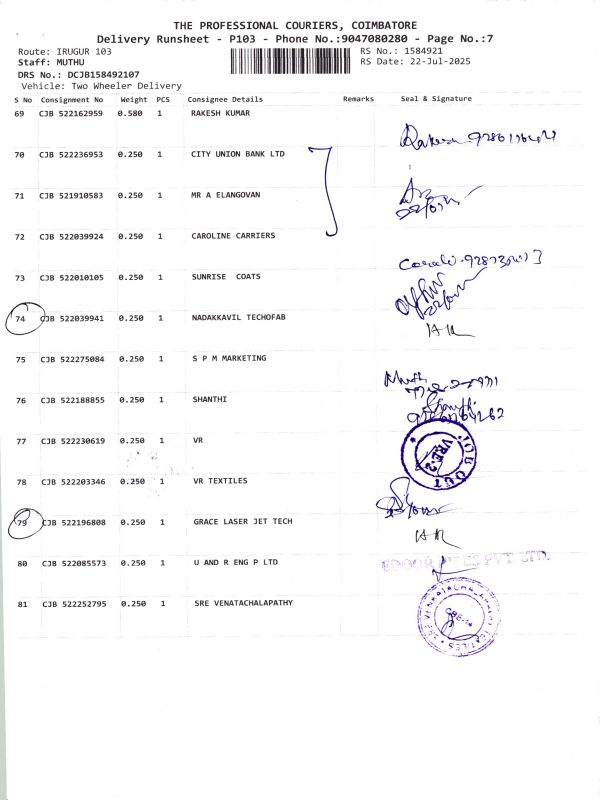 THE PROFESSIONAL COURIERS, COIMBATORE
Delivery Runsheet - P103 - Phone No.:9047080280 - Page No.:7
Route: IRUGUR 103 RS No.: 1584921
Staff: MUTHU RS Date: 22-Jul-2025
DRS No.: DCJB158492107
Vehicle: Two Wheeler Delivery
S No Consignment No Weight PCS Consignee Details Remarks Seal & Signature
69 CJB 522162959 0.580 1 RAKESH KUMAR
70 CJB 522236953 0.250 1 CITY UNION BANK LTD
71 CJB 521910583 0.250 1 MR A ELANGOVAN
72 CJB 522039924 0.250 1 CAROLINE CARRIERS
73 CJB 522010105 0.250 1 SUNRISE COATS
74 CJB 522039941 0.250 1 NADAKKAVIL TECHOFAB
75 CJB 522275084 0.250 1 S P M MARKETING
76 CJB 522188855 0.250 1 SHANTHI
77 CJB 522230619 0.250 1 VR
JOB OUT
78 CJB 522203346 0.250 1 VR TEXTILES
79 CJB 522196808 0.250 1 GRACE LASER JET TECH
80 CJB 522085573 0.250 1 U AND R ENG P LTD
81 CJB 522252795 0.250 1 SRE VENATACHALAPATHY